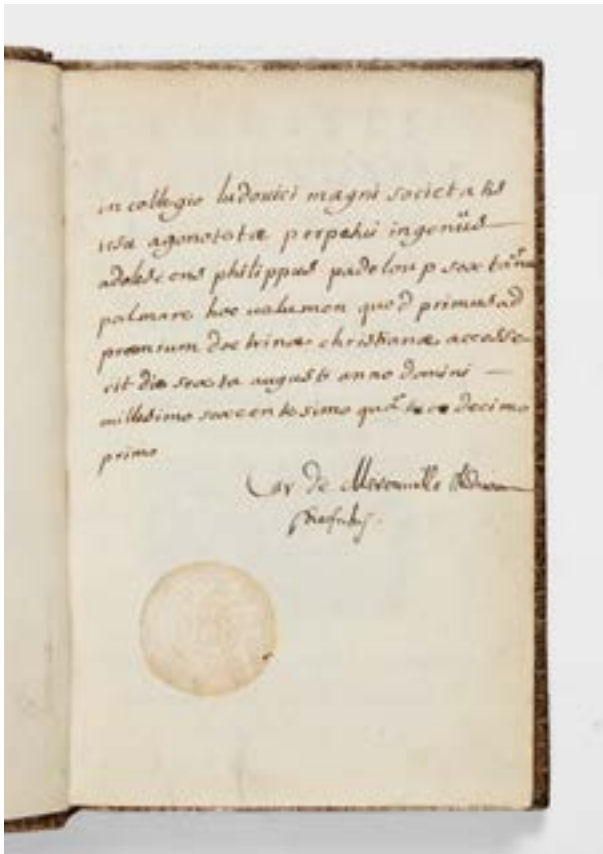 in collegio ludovici magni societatis
iesu agonotetæ perpetui ingeniüs
adolescens philippus padelou p sexta
palmare hoc volumen quod primus ad
præmium doctrinæ christianæ accesse-
rit die sexta augusti anno domini
millesimo sexcentesimo decimo
primo
Car de Merouville